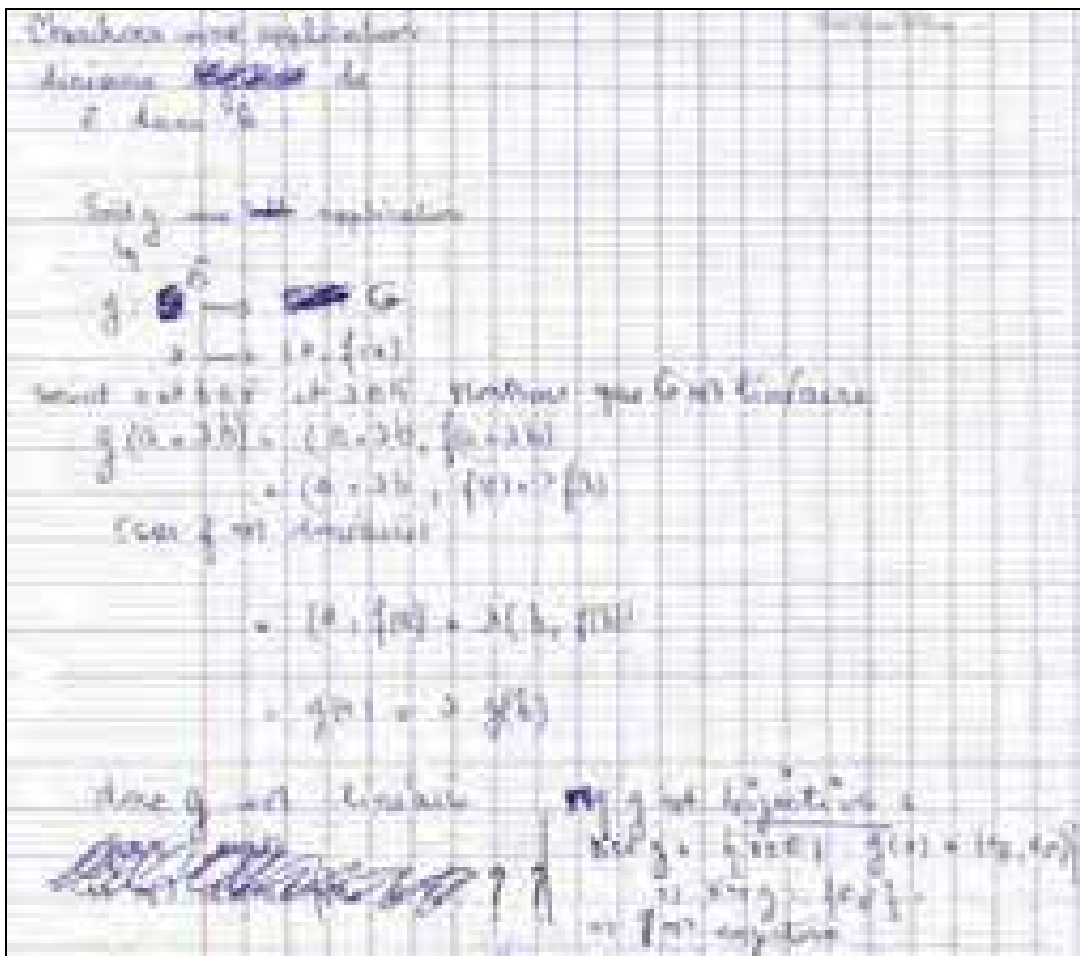 Cherchons une application
linéaire de
E dans G
Soit g une application
tq
g: E → G
x → (x, f(x))
soient a et b ∈ E et λ ∈ K montrons que G est linéaire
g(a+λb) = (a+λb, f(a+λb)
= (a+λb, f(a)+λf(b)
(car f est linéaire)
= (a, f(a) + λ(b, f(b))
= g(a) + λ g(b)
donc g est linéaire
? ?
Mq g est bijective
Ker g = {x∈E, g(x) = (0E, 0F)}
=> Ker g = {0E}
est injective